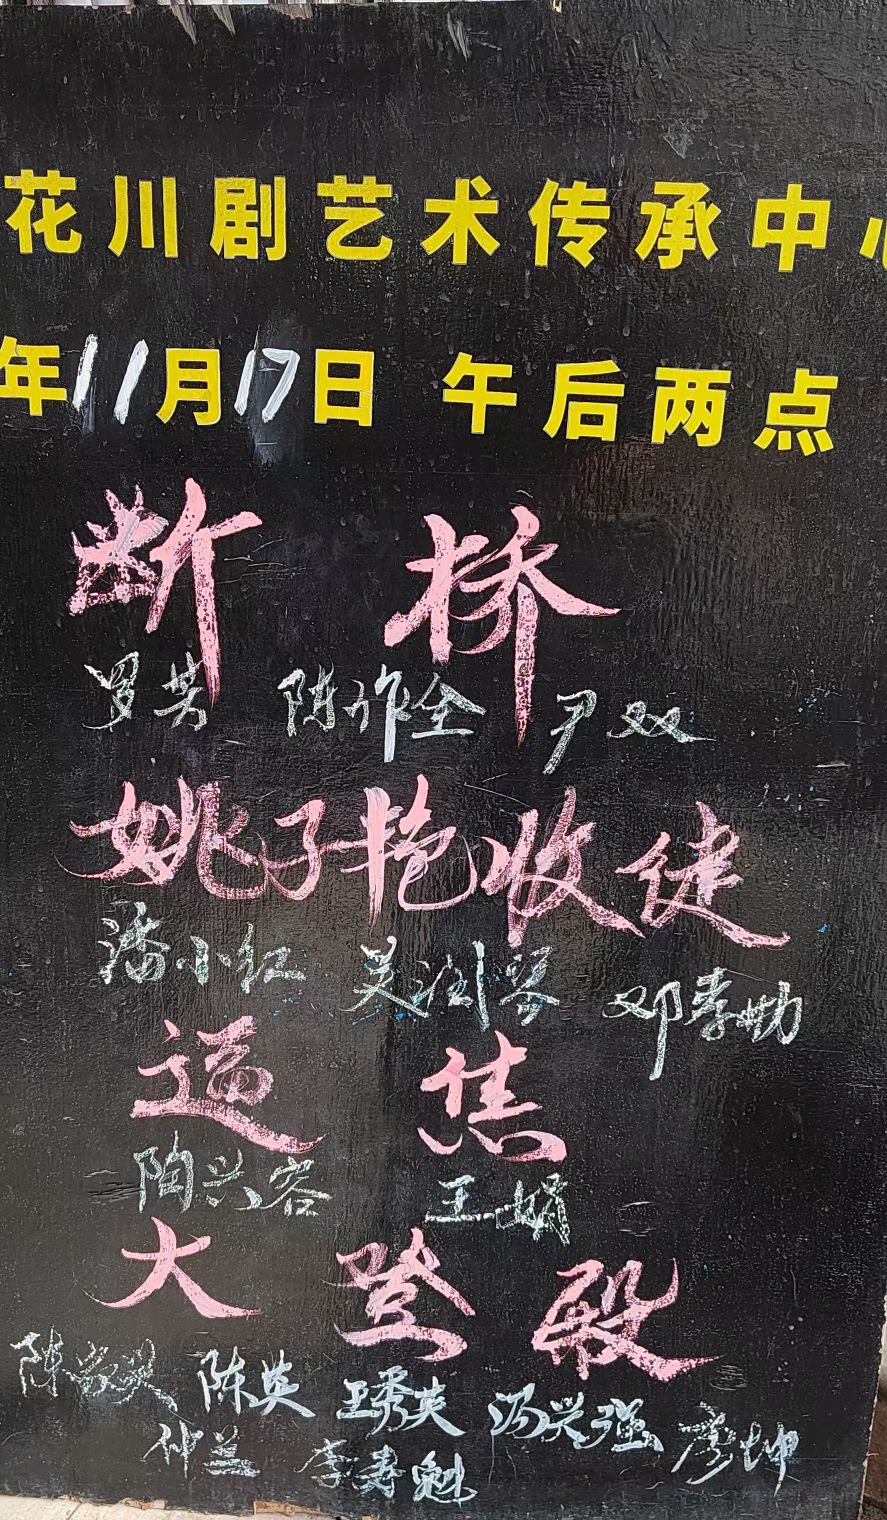 花川剧艺术传承中心
年11月17日 午后两点
断桥
罗芳 陈作全 尹双
姚子艳收徒
潘小红 吴润琴 邓孝勋
逼焦
陶兴容 王娟
大登殿
陈家 陈英 王秀英 冯兴强 廖坤
仲益 李寿魁